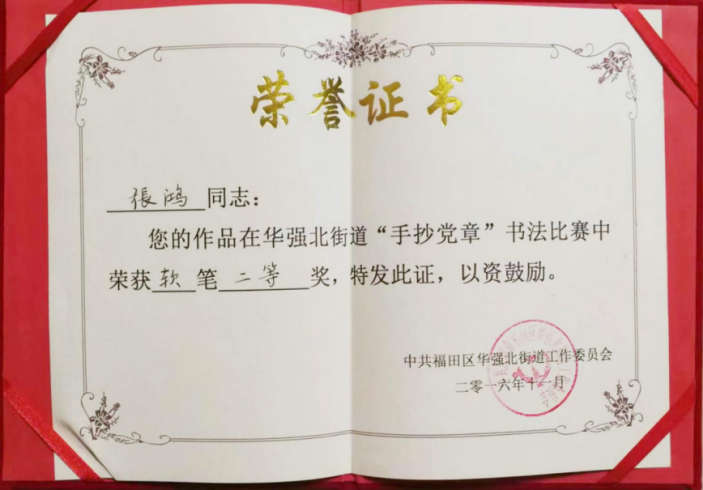 荣誉证书
張鸿同志：
您的作品在华强北街道“手抄党章”书法比赛中
荣获软笔二等奖，特发此证，以资鼓励。
中共福田区华强北街道工作委员会
二零一六年十一月